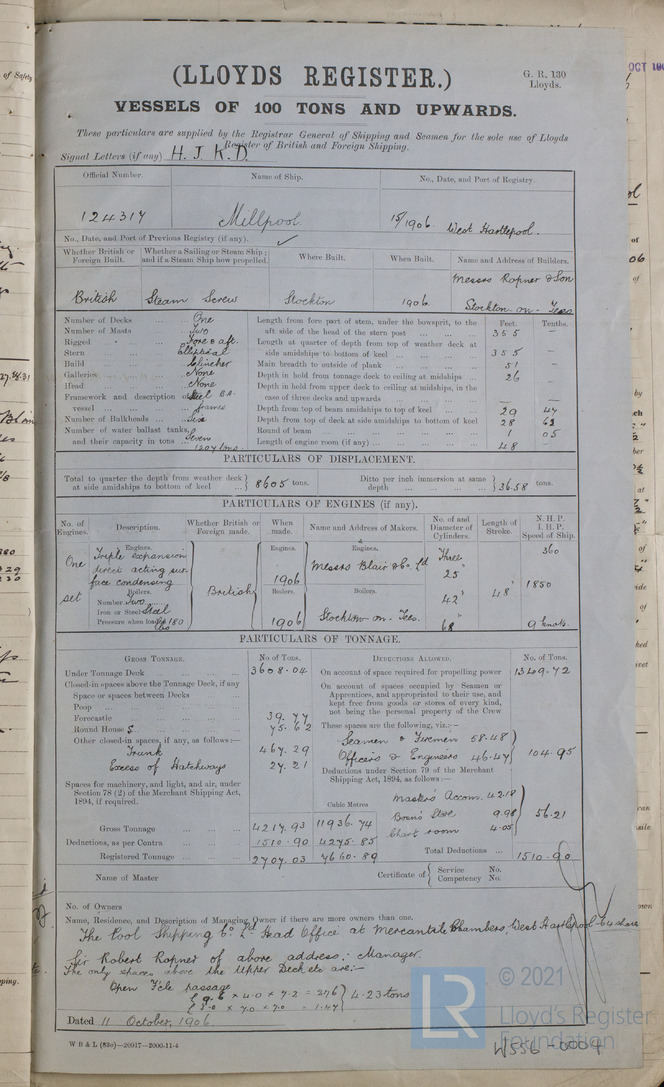 (LLOYDS REGISTER.)
G. R. 130
Lloyds.
OCT 190
of Safety
VESSELS OF 100 TONS AND UPWARDS.
These particulars are supplied by the Registrar General of Shipping and Seamen for the sole use of Lloyds
Register of British and Foreign Shipping.
Signal Letters (if any) H. J. K. D.
Official Number. Name of Ship. No., Date, and Port of Registry.
124317 Millpool 15/1906 West Hartlepool.
No., Date, and Port of Previous Registry (if any).
Whether British or Foreign Built. Whether a Sailing or Steam Ship; and if a Steam Ship how propelled. Where Built. When Built. Name and Address of Builders.
British Steam Screw Stockton 1906 Messrs Ropner & Son Stockton-on-Tees
Number of Decks ... One
Number of Masts ... Two
Rigged ... Fore & aft.
Stern ... Elliptical
Build ... Clincher
Galleries ... None
Head ... None
Framework and description of vessel ... Steel B.A. frames
Number of Bulkheads ... Five
Number of water ballast tanks, and their capacity in tons ... Seven 1204 tons
Feet. Tenths.
Length from fore part of stem, under the bowsprit, to the aft side of the head of the stern post ... 355 —
Length at quarter of depth from top of weather deck at side amidships to bottom of keel ... 355 —
Main breadth to outside of plank ... 51 —
Depth in hold from tonnage deck to ceiling at midships ... 26 —
Depth in hold from upper deck to ceiling at midships, in the case of three decks and upwards ... — —
Depth from top of beam amidships to top of keel ... 29 47
Depth from top of deck at side amidships to bottom of keel 28 62
Round of beam ... 1 05
Length of engine room (if any) ... 48
PARTICULARS OF DISPLACEMENT.
Total to quarter the depth from weather deck at side amidships to bottom of keel ... } 8605 tons.
Ditto per inch immersion at same depth ... } 36.58 tons.
PARTICULARS OF ENGINES (if any).
No. of Engines. Description. Whether British or Foreign made. When made. Name and Address of Makers. No. of and Diameter of Cylinders. Length of Stroke. N.H.P. I.H.P. Speed of Ship.
One set
Engines.
Triple expansion
direct acting sur
face condensing
Boilers.
Number Two
Iron or Steel Steel
Pressure when loaded 180 lbs
British
Engines. 1906
Boilers. 1906
Engines. Messrs Blair & Co. Ld
Boilers. Stockton-on-Tees.
Three
25"
42"
68"
48"
360
1850
9 knots.
PARTICULARS OF TONNAGE.
GROSS TONNAGE. No. of Tons.
Under Tonnage Deck ... 3608.04
Closed-in spaces above the Tonnage Deck, if any
Space or spaces between Decks ...
Poop ...
Forecastle ... 39.77
Round House s ... 75.62
Other closed-in spaces, if any, as follows:—
Trunk 467.29
Excess of Hatchways 27.21
Spaces for machinery, and light, and air, under
Section 78 (2) of the Merchant Shipping Act,
1894, if required.
Cubic Metres
Gross Tonnage ... 4217.93 11936.74
Deductions, as per Contra ... 1510.90 4275.85
Registered Tonnage ... 2707.03 7660.89
DEDUCTIONS ALLOWED. No. of Tons.
On account of space required for propelling power 1349.72
On account of spaces occupied by Seamen or
Apprentices, and appropriated to their use, and
kept free from goods or stores of every kind,
not being the personal property of the Crew
These spaces are the following, viz.:—
Seamen & Firemen 58.48
Officers & Engineers 46.47 } 104.95
Deductions under Section 79 of the Merchant
Shipping Act, 1894, as follows:—
Master's Accom. 42.18
Bosn's Store 9.98
Chart room 4.05 } 56.21
Total Deductions ... 1510.90
Name of Master
Certificate of { Service No. Competency No.
No. of Owners
Name, Residence, and Description of Managing Owner if there are more owners than one.
The Pool Shipping Co. Ld Head Office at Mercantile Chambers, West Hartlepool 64 shares
Sir Robert Ropner of above address: Manager.
The only spaces above the Upper Deck etc are:—
Open F'cle passage
{ 9.6 x 4.0 x 7.2 = 276
} 4.23 tons
Dated 11 October, 1906.
W B & L (83o)—20917—2000-11-4
LR
© 2021
Lloyd's Register
Foundation
W556-0004